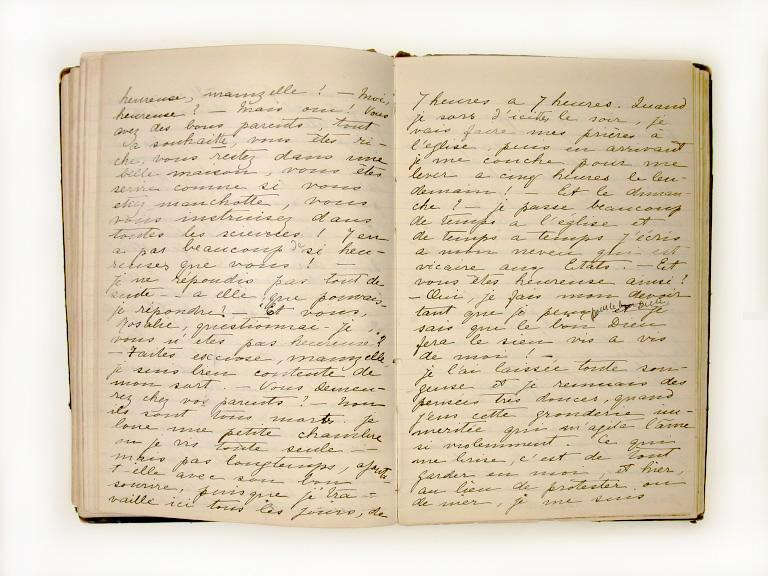 heureuse, mamzelle! – Moi,
heureuse? – Mais oui! Vous
avez des bons parents, tout
à souhaitte, vous êtes ri-
che, vous restez dans une
belle maison, vous êtes
servie comme si vous
étiez manchotte, vous
vous instruisez dans
toutes les sciences! Y en
a pas beaucoup de si heu-
reuses que vous! –
je ne répondis pas tout de
suite – à elle, que pouvais-
je répondre? – Et vous,
Rosalie, questionnai-je,
vous n'êtes pas heureuse?
– Faites excuse, mamzelle,
je suis bien contente de
mon sort. – Vous demeu-
rez chez vos parents? – Non
ils sont tous morts. je
loue une petite chambre
ou je vis toute seule –
mais pas longtemps, ajouta
t'elle avec son bon
sourire, puisque je tra-
vaille ici tous les jours, de
7 heures a 7 heures. Quand
je sors d'ici le soir, je
vais faire mes prières à
l'église, puis en arrivant
je me couche pour me
lever a cinq heures le len-
demain! – Et le diman-
che? – je passe beaucoup
de temps a l'église et
de temps a temps j'écris
a mon neveu qui est
vicaire aux Etats. – Et
vous êtes heureuse ainsi?
– Oui, je fais mon devoir
tant que je peux pour le bon Dieu et je
sais que le bon Dieu
fera le sien vis a vis
de moi! –
je l'ai laissée toute son-
geuse et je remuais des
pensées très douces, quand
j'eus cette gronderie im-
méritée qui m'agita l'âme
si violemment. Ce qui
me brise, c'est de tout
garder en moi, et hier,
au lieu de protester ou
de nier, je me suis